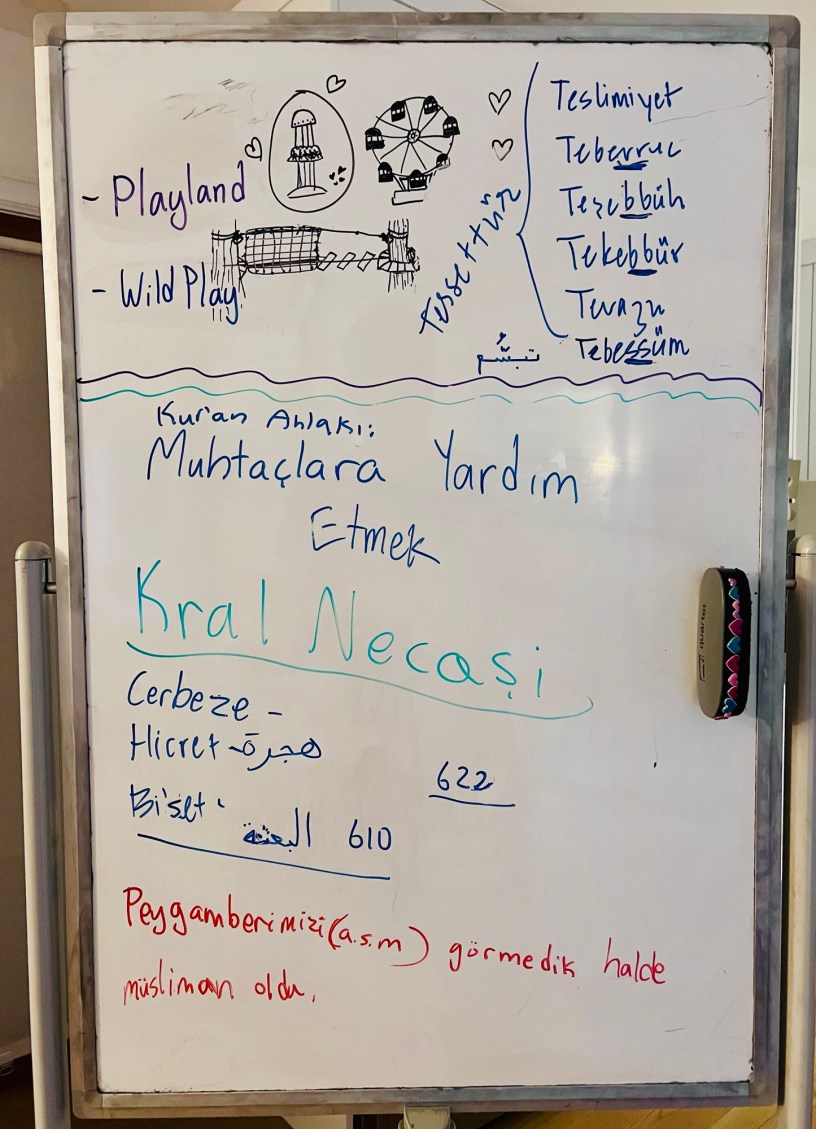 - Playland
- Wild Play
Tessettür
Teslimiyet
Teberruc
Teşebbüh
Tekebbür
Tevazu
تبسُّم Tebessüm
Kur'an Ahlakı:
Muhtaçlara Yardım
Etmek
Kral Necaşi
Cerbeze -
Hicret - هجرة
622
Bi'set
البعثة 610
Peygamberimizi (a.s.m) görmedik halde
müsliman oldu.
quartet